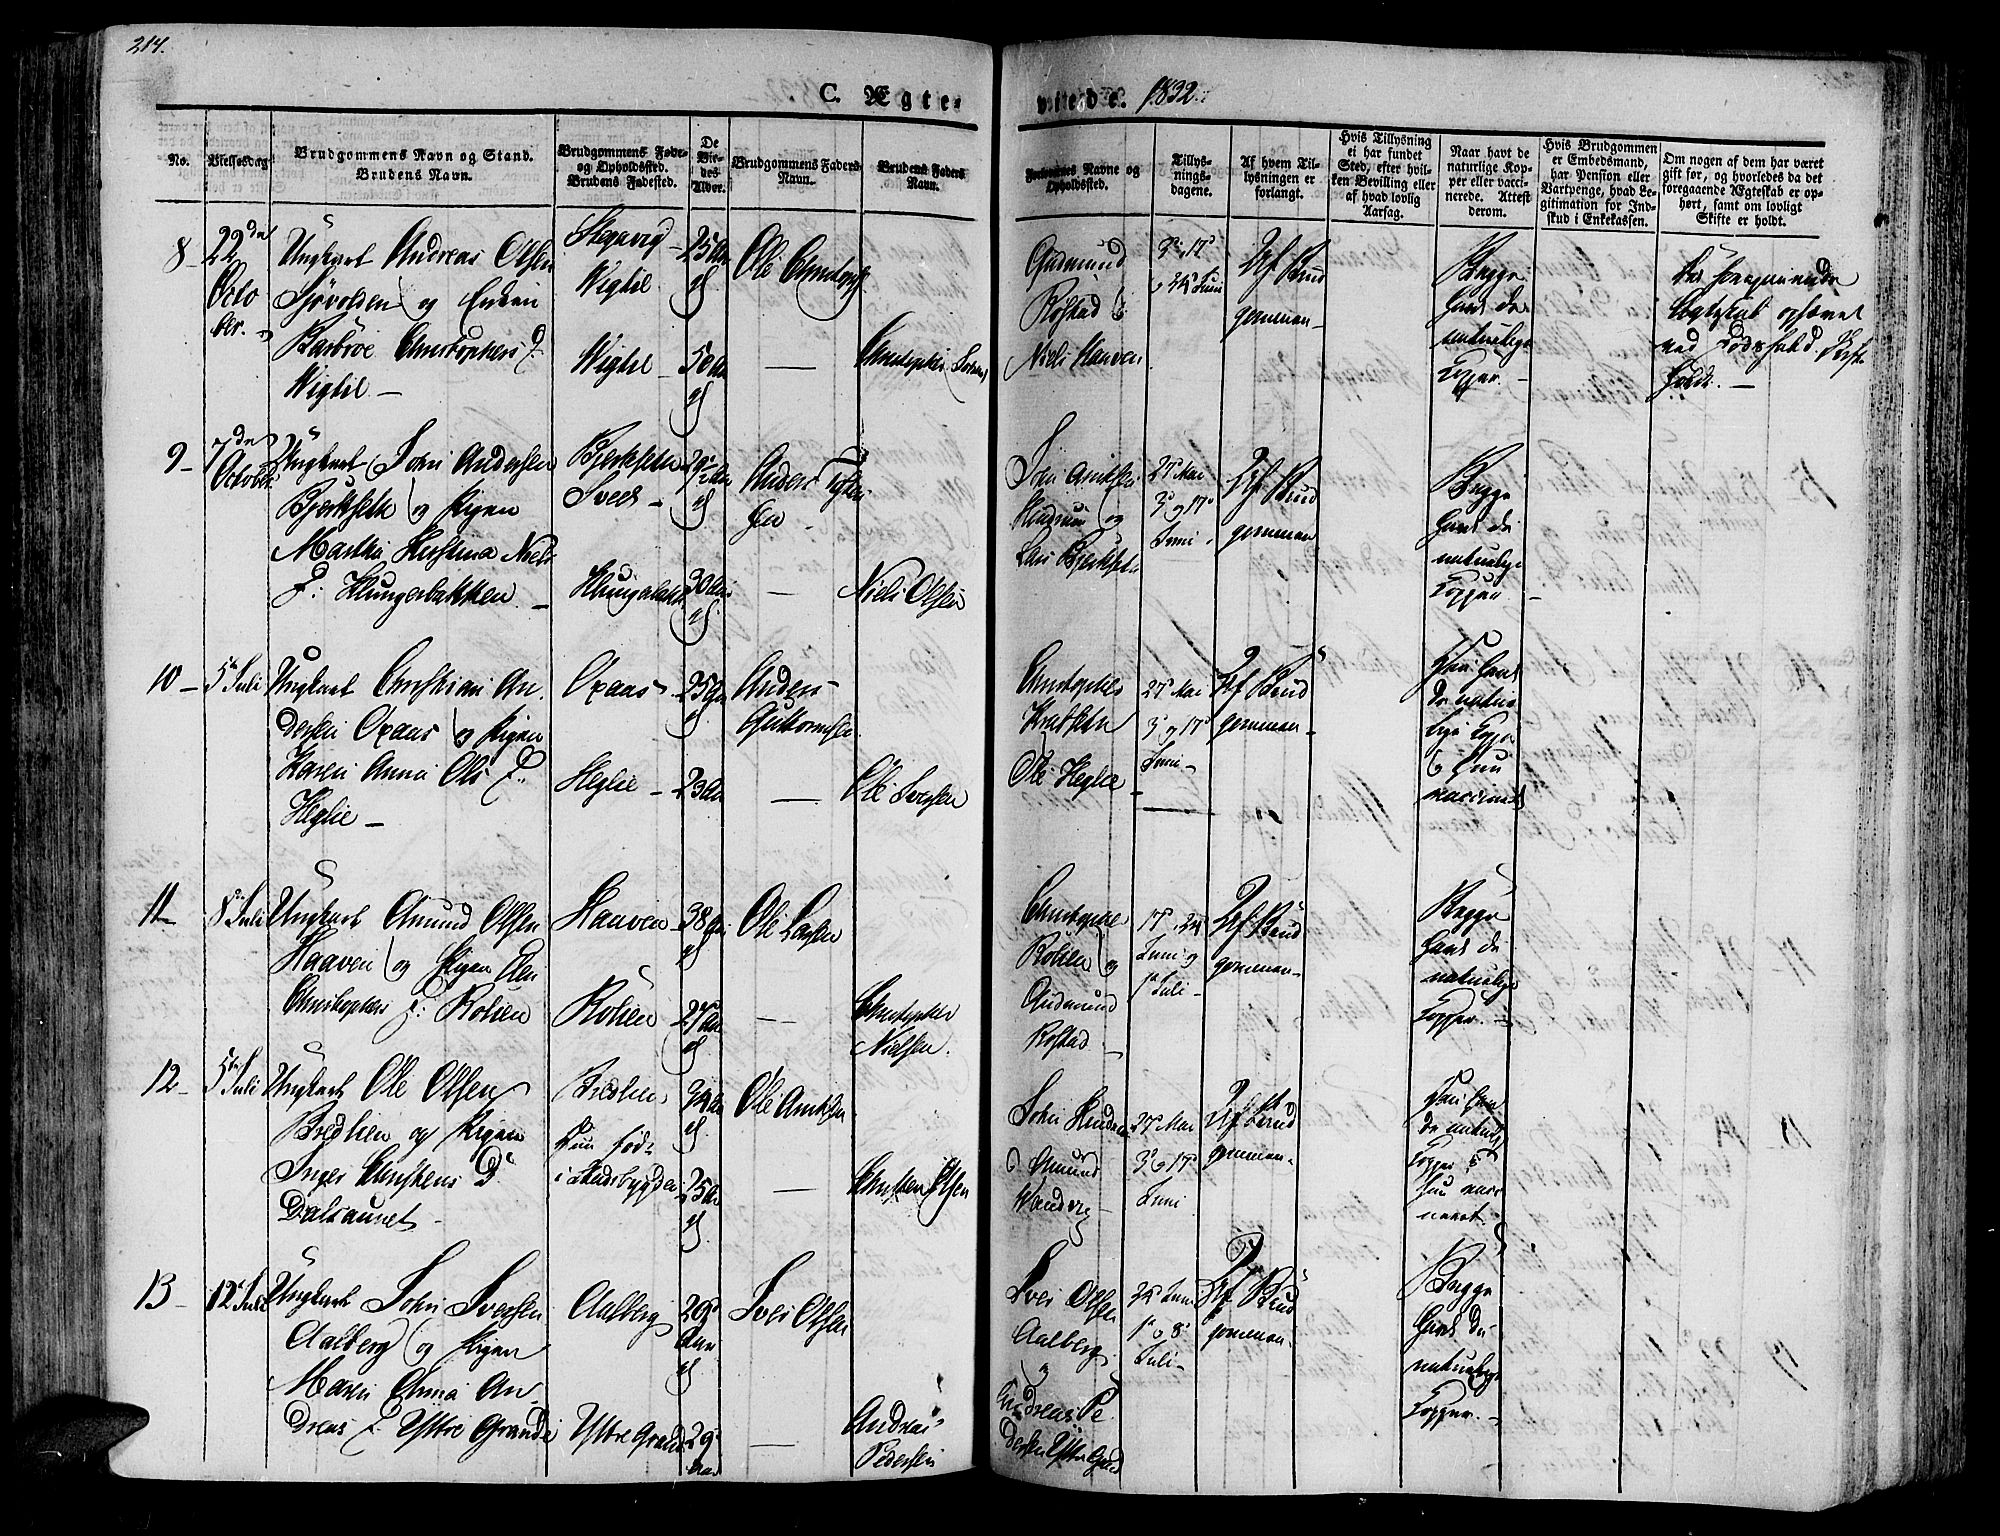 214.
C. Ægte-
viede. 1832.
No.
Vielsesdag
Brudgommens Navn og Stand.
Brudens Navn.
Brudgommens Føde-
og Opholdssted.
Brudens Fødested.
De
Vie-
des
Alder.
Brudgommens Faders
Navn.
Brudens Faders
Navn.
Forlovernes Navne og
Opholdssted.
Tillys-
nings-
dagene.
Af hvem Til-
lysningen er
forlangt.
Hvis Tillysning
ei har fundet
Sted, efter hvil-
ken Bevilling eller
af hvad lovlig
Aarsag.
Naar havt de
naturlige Kop-
per eller vacci-
nerede. Attest
derom.
Hvis Brudgommen
er Embedsmand,
har Pension eller
Vartpenge, hvad Le-
gitimation for Ind-
skud i Enkekassen.
Om nogen af dem har været
gift før, og hvorledes da det
foregaaende Ægteskab er op-
hørt, samt om lovligt
Skifte er holdt.
8
22de
Octo
ber.
Ungkarl Andreas Olsen
Sjøvolden og Enken
Barbroe Christophers D.
Wigtil
Wigtil
Wigtil
25 Aar
50 Aar
Ole
Christopher
Gudmund
Rostad
Niels Haaven
3die 17de
24 Juni
Af Brud
gommen
Begge
havt de
naturlige
Kopper.
Det foregaaende
Ægteskab ophævet
ved Dødsfald. Skifte
holdt.
9
7de
October
Ungkarl John Andersen
Bjerksetn og Pigen
Martha Kirstina Niels
D: Klungerbakken
Bjerksetn
30 Aar
Anders
Niels Olsen
John
og
Lars Bjerksetn
27 Mai
3 og 17
Juni
Af Brud
gommen
Begge
havt de
naturlige
Kopper
10
5te Juli
Ungkarl Christian An
dersen Opaas og Pigen
Karen Anna Ols D.
Heglie
Opaas
Heglie
25 Aar
23 Aar
Anders
Guttormsen
Ole Iversen
Christopher
Ole Heglie
27 Mai
3 og 17
Juni
Af Brud
gommen
Han havt
de natur
lige Kopper
og hun
11
8de Juli
Ungkarl Amund Olsen
Haaven og Pigen Elen
Christophers D: Rolien
Haaven
Rolien
38 Aar
27 Aar
Ole Larsen
Christopher
Nielsen.
Christopher
Rolien og
Gudmund
Rostad
17de, 24
Juni og
1ste Juli
Af Brud
gommen
Begge
havt de
naturlige
Kopper.
12
5te Juli
Ungkarl Ole Olsen
Bredlien og Pigen
Inger Christens D.
Dalsaunet
Bredlien
Hun fød
i Stadsbygden
34 Aar
25 Aar
Ole
Christen Olsen
John
27 Mai
3 og 17
Juni
Af Brud
gommen
Han havt
de naturl.
Kopper
hun vacc
ineret.
13
12te Juli
Ungkarl John Iversen
Aalberg og Pigen
Maren Anna An
dreas D. Yttre Grande
Aalberg
Yttre Grande
29
Aar
29
Aar
Iver Olsen
Andreas
Pedersen
Iver Olsen
Aalberg
og
Andreas Pe
dersen Yttre Grand
24 Juni
1 og 8
Juli
Af Brud
gommen
Begge
havt de
naturlige
Kopper.